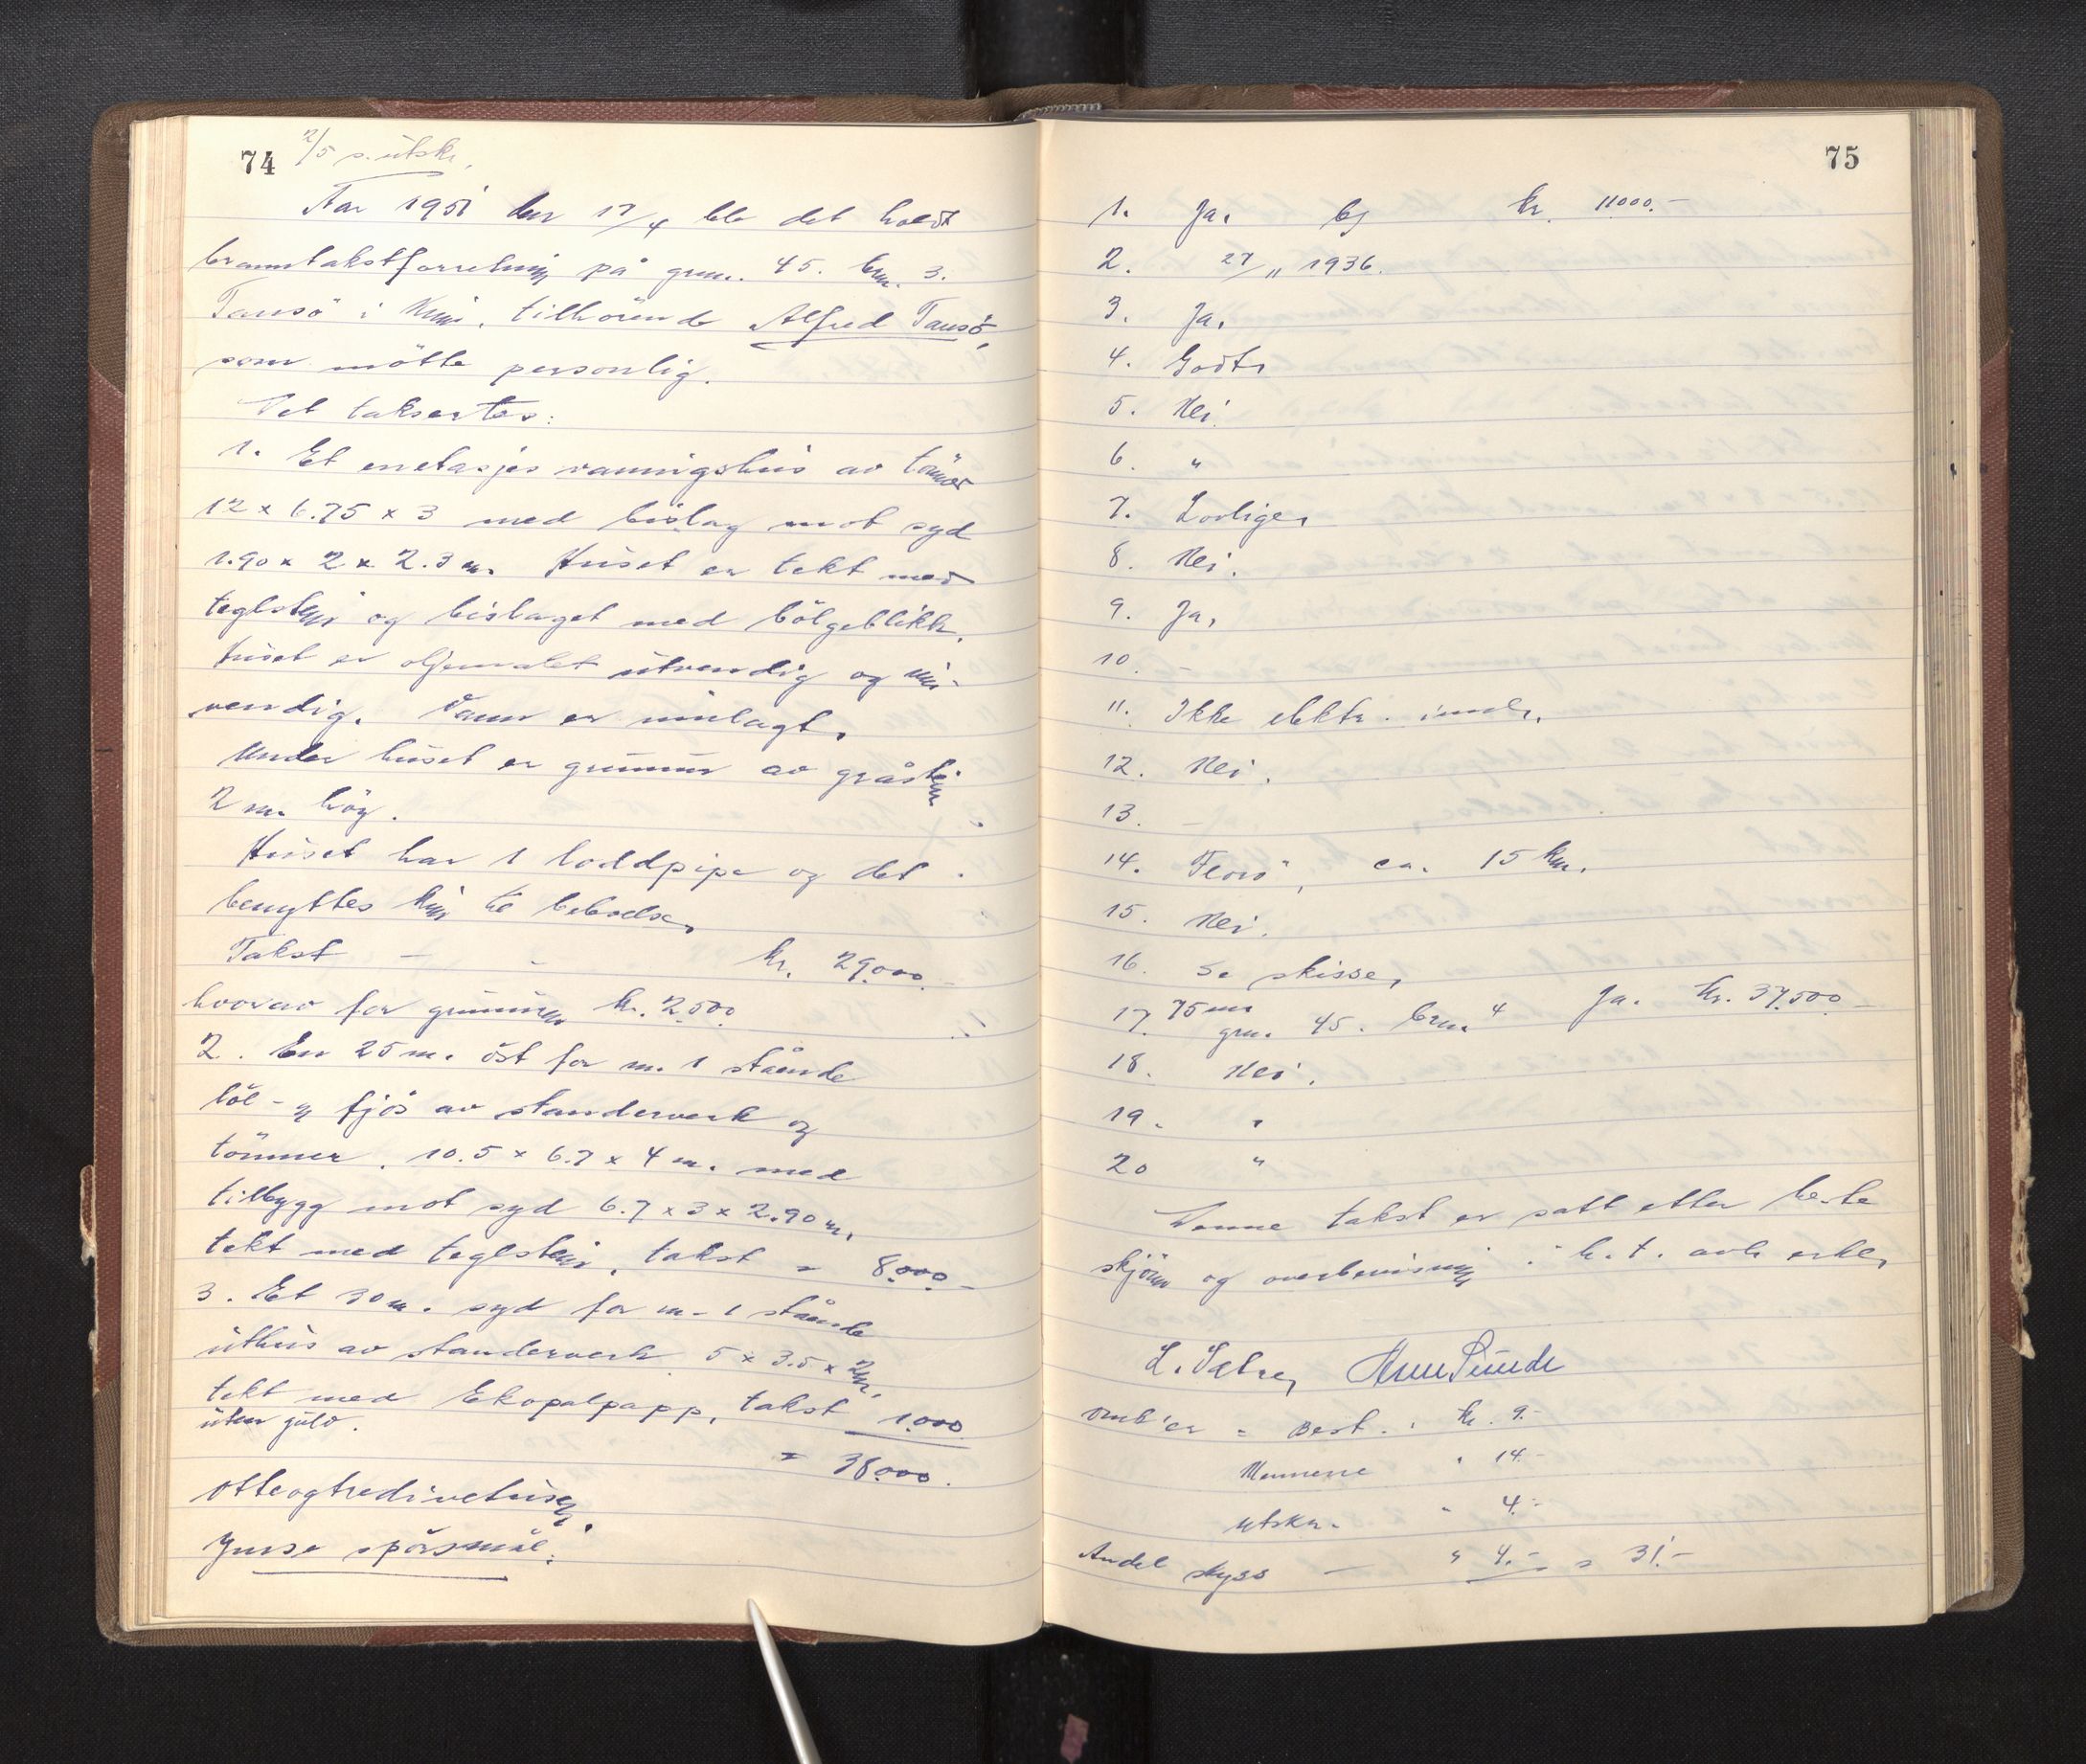 74
2/5 s. utskr.
Aar 1951 den 17/4 ble det holdt
branntakstforretning på grnr. 45. brnr. 3.
Tansö i Kinn, tilhörende Alfred Tansö,
som mötte personlig.
Det taksertes:
1. Et enetasjes vaaningshus av tömmer
12 x 6.75 x 3 med bislag mot syd
1.90 x 2 x 2.3 m. Huset er tekt med
teglstein og bislaget med bölgeblikk.
Huset er oljemalet utvendig og inn-
vendig. Vann er innlagt.
Under huset er grunnmur av gråstein
2 m. höy.
Huset har 1 loddpipe og det
benyttes kun til beboelse.
Takst — - kr. 29000.-
hvorav for grunnmur kr. 2500
2. En 25 m. öst for nr. 1 stående
löe- og fjös av standerverk og
tömmer. 10.5 x 6.7 x 4 m. med
tilbygg mot syd 6.7 x 3 x 2.90 m.
tekt med teglstein, takst " 8000-
3. Et 30 m. syd for nr. 1 stående
uthus av standerverk 5 x 3.5 x 2 m.
tekt med Ekopalpapp, takst 1000
uten gulv.
= 38000.
Otteogtredivetusen.
Jnnse spörsmål:
75
1. Ja, bg kr. 11000.-
2. 27/11 1936.
3. Ja,
4. Godt,
5. Nei.
6. "
7. Lovlige,
8. Nei.
9. Ja,
10. -
11. Ikke elektr. innl.
12. Nei.
13. -
14. Florö, ca. 15 km.
15. Nei.
16. Se skisse,
17. 75 m grn. 45. brnr. 4 Ja. kr. 37,500-
18. Nei.
19. "
20 "
Denne takst er satt etter beste
skjönn og overbevisning i h. t. avh erkl.
L. Sætre, Arne Sunde
Omk'er = Best. : kr. 9.-
Mennene " 14-
Utskr. " 4.-
Andel skyss — " 4.- = 31.-